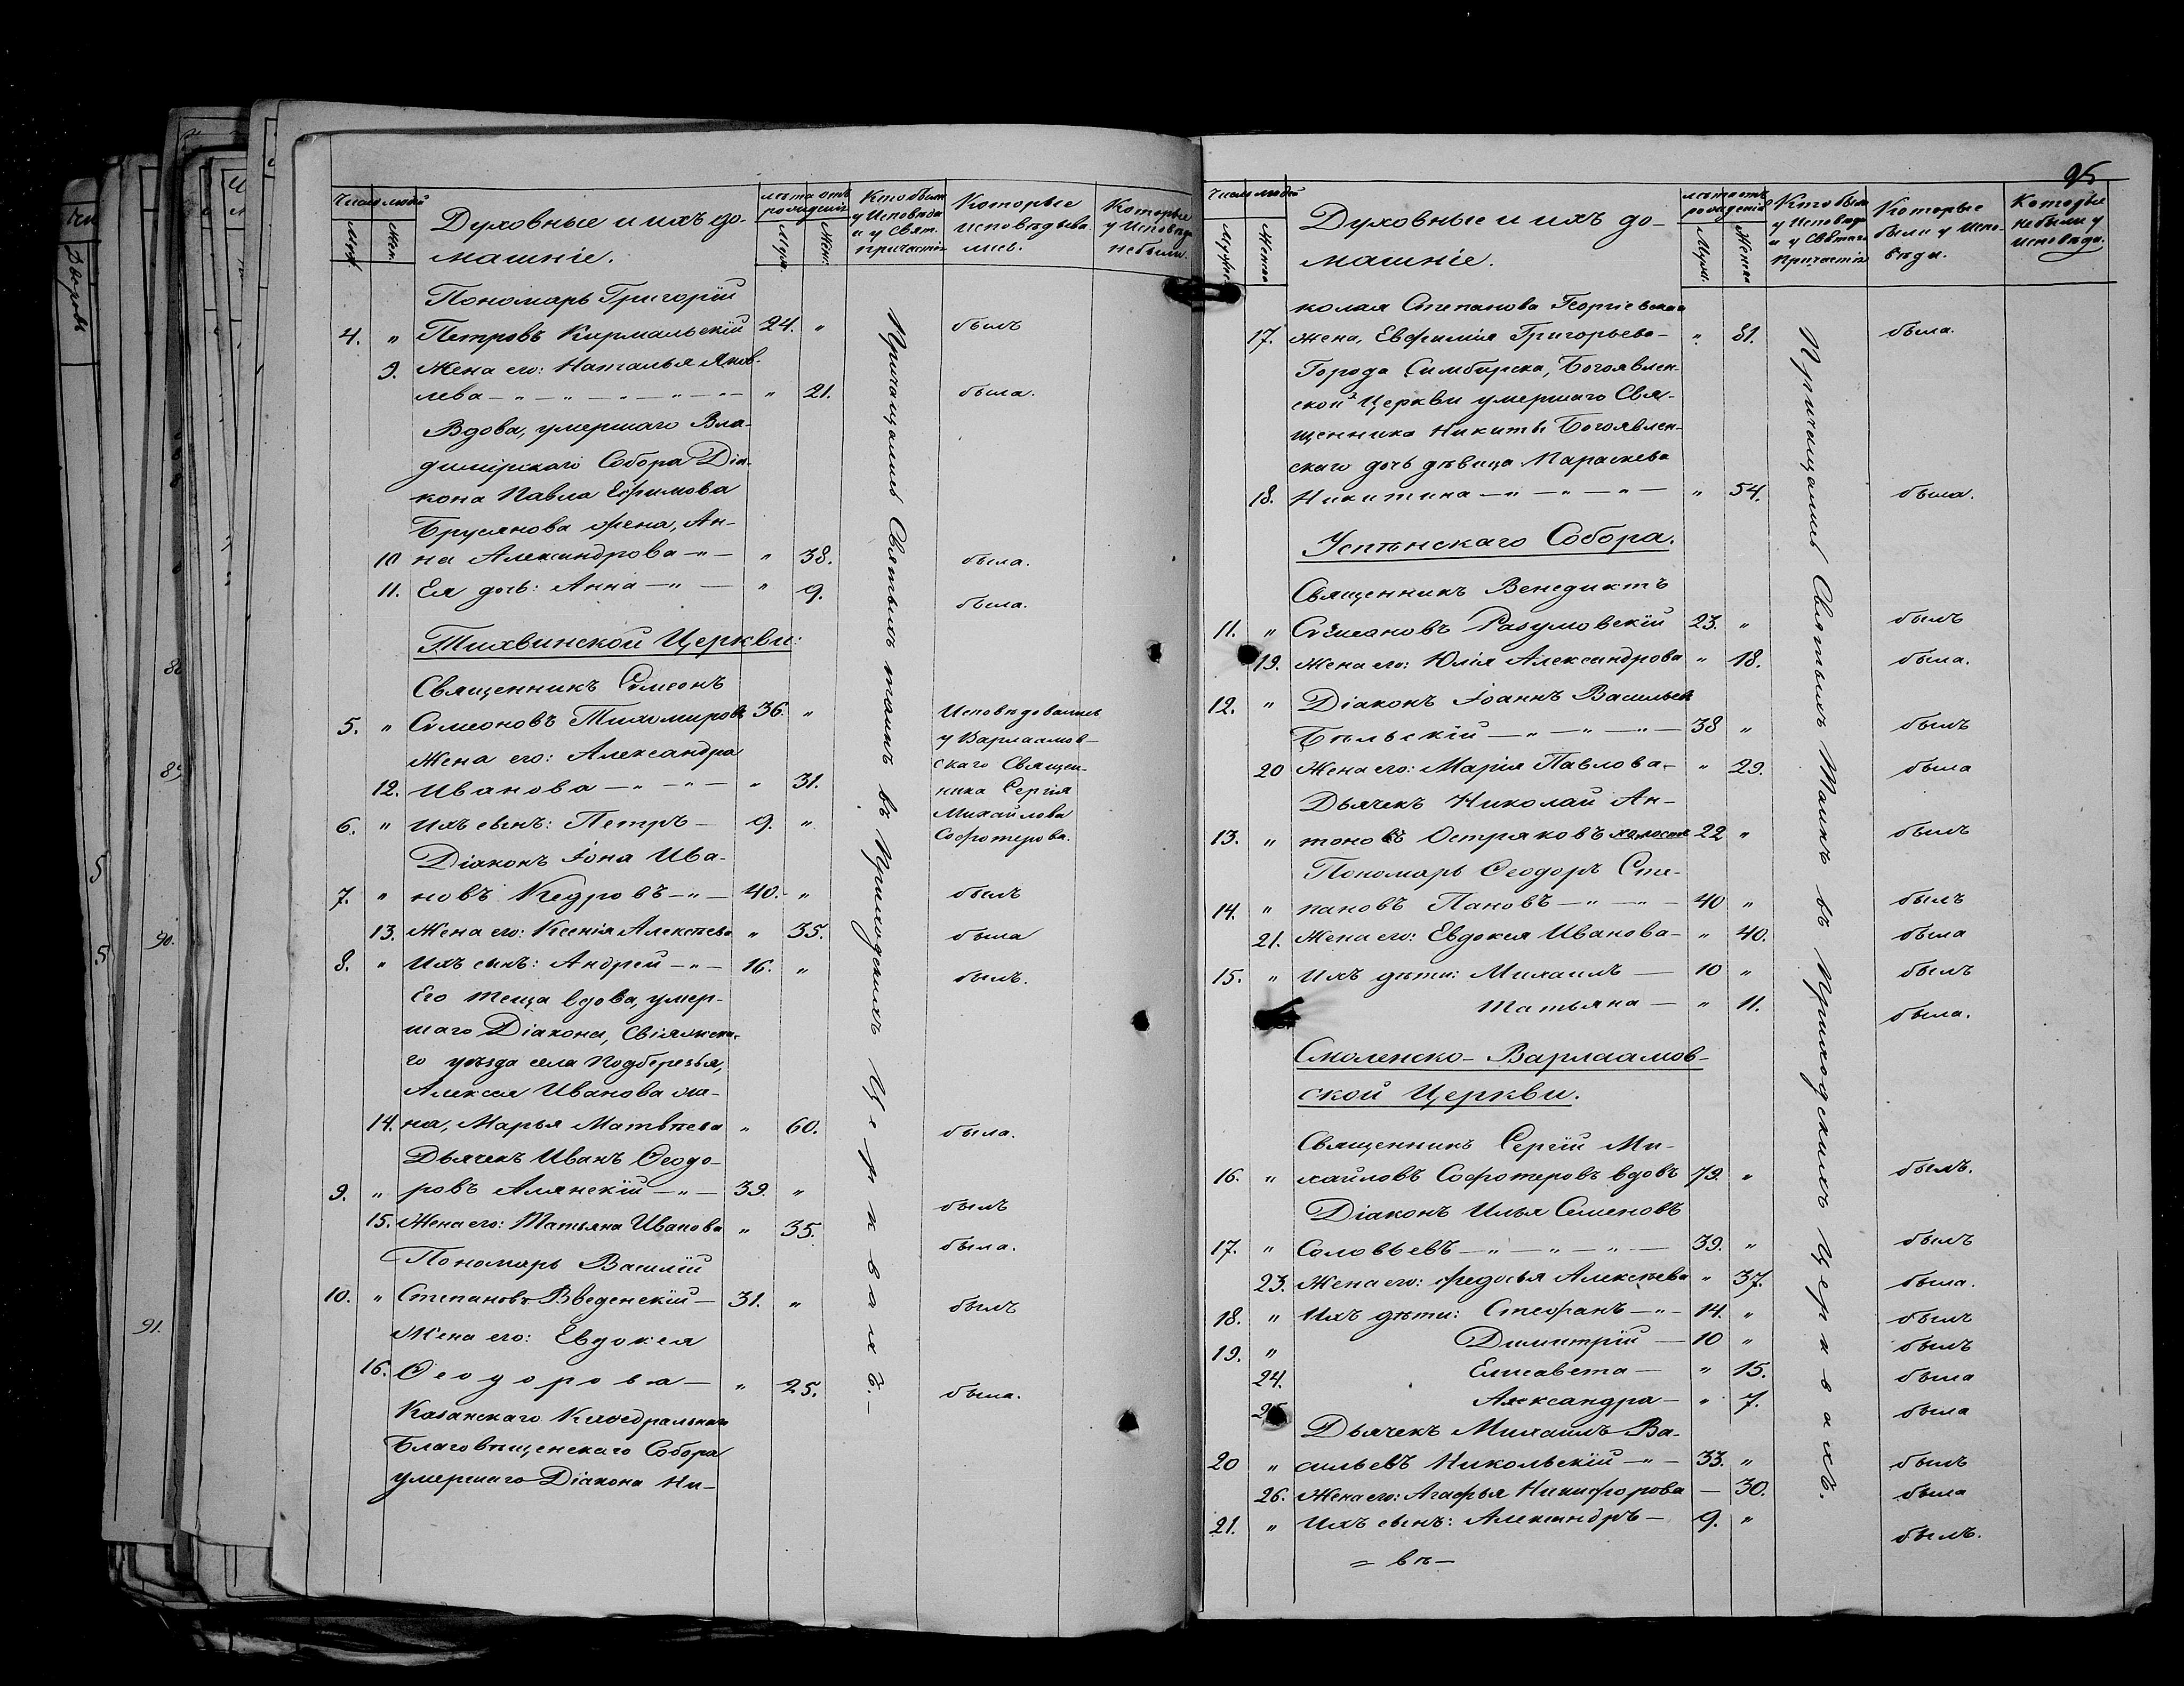 Число людей
Муж.
Жен.
Духовные и ихъ до-
машнiе.
лѣта отъ
рожденiя
Муж.
Жен.
Кто были
у Исповѣди
и у Свят.
причастiя
Которые
исповѣдыва
лись.
Которые
у Исповѣди
небыли.
Пономарь Григорiй
4. " Петровъ Кармальскiй 24. " былъ
9. Жена его: Наталья Яков-
лева — " — " — " — " — " 21. была.
Вдова, умершаго Вла-
димiрскаго Собора Дiа-
кона Павла Ефимова
Бруслянова жена, Ан-
10 на Александрова — " — " 38. была.
11. Ея дочь: Анна — " — " 9. была.
Тихвинской Церкви:
Священникъ Сѵмеонъ
5. " Сѵмеоновъ Тихомировъ 36. " Исповѣдовались
Жена его: Александра у Варлаамов-
скаго Священ-
12. Иванова — " — " — " 31. ника Сергiя
6. " Ихъ сынъ: Петръ — 9. " Михайлова
Софотерова.
Дiаконъ Iона Ива-
7. " новъ Кедровъ — " — 40. " былъ
13. Жена его: Ксенiя Алексѣева " 35. была
8. " Ихъ сынъ: Андрей — " — 16. " былъ.
Его теща вдова, умер-
шаго Дiакона, Свiяжска-
го уѣзда села Подберезья,
Алексея Иванова же-
14. на, Марья Матвѣева " 60. была.
Дьячекъ Иванъ Ѳеодо-
9. " ровъ Алянскiй — " — 39. " былъ
15. Жена его: Татьяна Иванова " 35. была.
Пономарь Василiй
10. " Степановъ Введенскiй — 31. " былъ
Жена его: Евдокея
16. Ѳеодорова — " 25. была.
Казанскаго Каѳедральнаго
Благовѣщенскаго Собора
умершаго Дiакона Ни-
Причащались Святыхъ таинъ въ Приходскихъ Церквахъ.
95
Число людей
Мужес
Женс
Духовные и ихъ до-
машнiе.
лѣта отъ
рожденiя
Муж.
Женск
Кто были
у Исповѣди
и у Святаго
Причастiя
Которые
были у Испо-
вѣди.
Которые
небыли у
исповѣди.
колая Степанова Георгiевскаго
17. жена, Евфимiя Григорьева — " 81. была.
Города Симбирска, Богоявлен-
ской Церкви умершаго Свя-
щенника Никиты Богоявлен-
скаго дочь дѣвица Параскева
18. Никитина — " — " — " — " 54. была.
Успѣнскаго Собора.
Священникъ Венедиктъ
11. " Сѵмеоновъ Разумовскiй 23. " былъ
19. Жена его: Юлiя Александрова " 18. была.
12. " Дiаконъ Iоаннъ Васильевъ
Бѣльскiй — " — " — " — 38 " былъ
20 Жена его: Марiя Павлова — " 29. была
Дьячекъ Николай Ан-
13. " тоновъ Остряковъ холостъ 22 " былъ
Пономарь Ѳеодоръ Сте-
14. " пановъ Пановъ — " — " — 40 " былъ
21. Жена его: Евдокея Иванова — " 40. была
15. " Ихъ дѣти: Михаилъ — 10 " былъ
Татьяна — " 11. была.
Смоленско-Варлаамов-
ской Церкви.
Священникъ Сергiй Ми-
16. " хайловъ Софотеровъ вдовъ 79. " былъ.
Дiаконъ Илья Семеновъ
17. " Соловьевъ — " — " — " — 39. " былъ
23. Жена его: Федосья Алексѣева " 37. была.
18. " Ихъ дѣти: Стефанъ — " — 14. " былъ
19. " Димитрiй — 10 " былъ
24. Елисавета — " 15. была
25 Александра — " 7. была
Дьячекъ Михаилъ Ва-
20 " сильевъ Никольскiй — " — 33. " былъ
26. Жена его: Агафья Никифорова — 30. была
21. " Ихъ сынъ: Александръ — 9. " былъ.
Причащались Святыхъ Таинъ въ Приходскихъ Церквахъ.